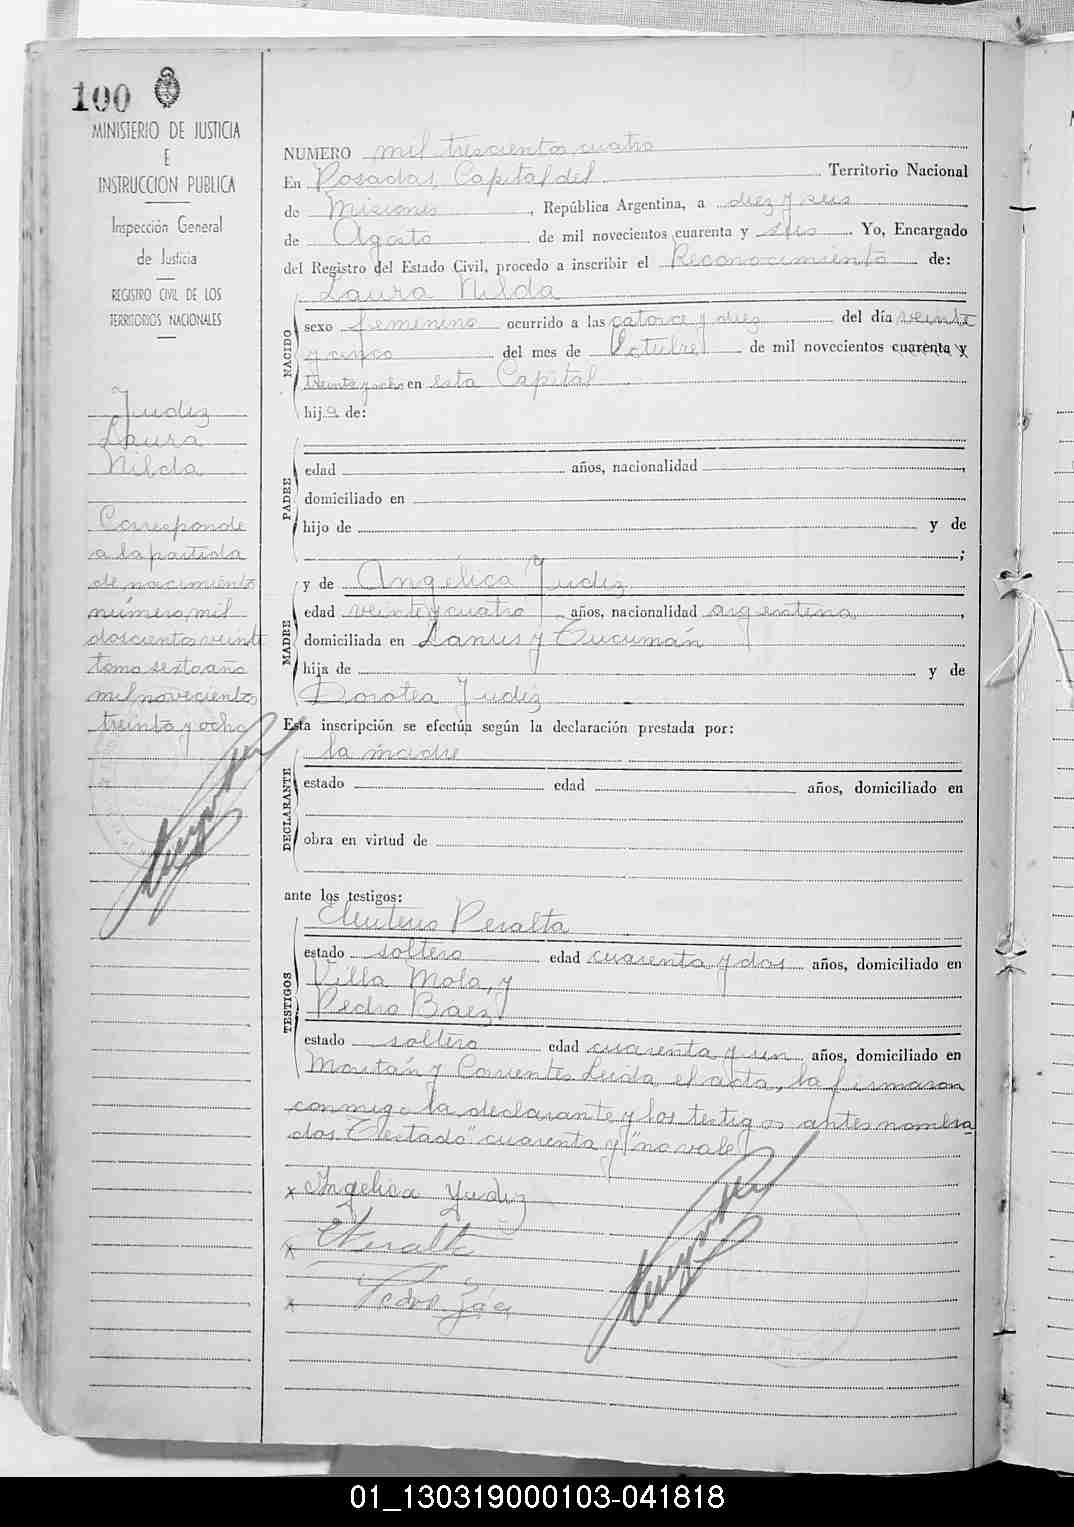 100
MINISTERIO DE JUSTICIA
E
INSTRUCCION PUBLICA
Inspección General
de Justicia
REGISTRO CIVIL DE LOS
TERRITORIOS NACIONALES
Yudiz
Laura
Nilda
Corresponde
a la partida
de nacimiento
número mil
doscientos veinte
tomo sexto año
mil novecientos
treinta y ocho
NUMERO mil trescientos cuatro
En Posadas, Capital del Territorio Nacional
de Misiones, República Argentina, a diez y seis
de Agosto de mil novecientos cuarenta y seis Yo, Encargado
del Registro del Estado Civil, procedo a inscribir el Reconocimiento de:
Laura Nilda
NACIDO
sexo femenino ocurrido a las catorce y diez del día veinte
y cinco del mes de Octubre de mil novecientos cuarenta y
treinta y ocho en esta Capital
hija de:
PADRE
edad años, nacionalidad ,
domiciliado en
hijo de y de
;
MADRE
y de Angélica Yudiz
edad veinte y cuatro años, nacionalidad argentina,
domiciliada en Lanus y Tucumán
hija de y de
Dorotea Yudiz
Esta inscripción se efectúa según la declaración prestada por:
la madre
DECLARANTE
estado edad años, domiciliado en
obra en virtud de
ante los testigos:
TESTIGOS
Peralta
estado soltero edad cuarenta y dos años, domiciliado en
Villa Mola, y
Pedro Baez
estado soltero edad cuarenta y un años, domiciliado en
y Corrientes Leida el acta, la firmaron
conmigo la declarante y los testigos antes nombra
dos Testado "cuarenta y" no vale
x Angelica Yudiz
x Peralta
x Pedro Báez
01_130319000103-041818